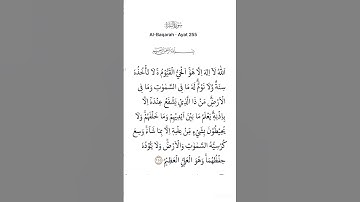 سورة البقرة
Al-Baqarah - Ayat 255
بِسْمِ اللّٰهِ الرَّحْمٰنِ الرَّحِيْمِ
اَللّٰهُ لَآ اِلٰهَ اِلَّا هُوَۚ اَلْحَيُّ الْقَيُّوْمُ ەۚ لَا تَأْخُذُهٗ
سِنَةٌ وَّلَا نَوْمٌۗ لَهٗ مَا فِى السَّمٰوٰتِ وَمَا فِى
الْاَرْضِۗ مَنْ ذَا الَّذِيْ يَشْفَعُ عِنْدَهٗٓ اِلَّا
بِاِذْنِهٖۗ يَعْلَمُ مَا بَيْنَ اَيْدِيْهِمْ وَمَا خَلْفَهُمْۚ وَلَا
يُحِيْطُوْنَ بِشَيْءٍ مِّنْ عِلْمِهٖٓ اِلَّا بِمَا شَاۤءَۚ وَسِعَ
كُرْسِيُّهُ السَّمٰوٰتِ وَالْاَرْضَۚ وَلَا يَـُٔوْدُهٗ
حِفْظُهُمَاۚ وَهُوَ الْعَلِيُّ الْعَظِيْمُ ٢٥٥